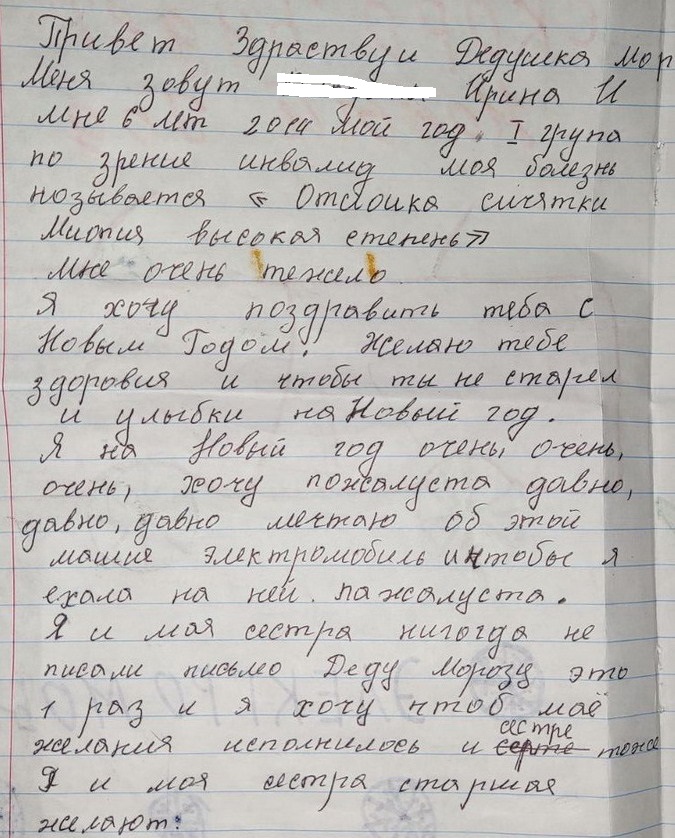 Привет Здраствуй Дедушка Мор
Меня зовут Ирина И
мне 6 лет 2014 мой год. I група
по зрение инвалид моя болезнь
называется « Отслойка сичятки
Миопия высокая степень»
Мне очень тежело
Я хочу поздравить теба с
Новым Годом. Желаю тебе
здоровия и чтобы ты не старел
и улыбки на Новый год.
Я на Новый год очень, очень,
очень, хочу пожалуста давно,
давно, давно мечтаю об этой
машие электромобиль и чтобы я
ехала на ней. пажалуста.
Я и моя сестра нигогда не
писали письмо Деду Морозу это
1 раз и я хочу чтоб маё
желания исполнилось и сестре тоже
Я и моя сестра старшая
желают: